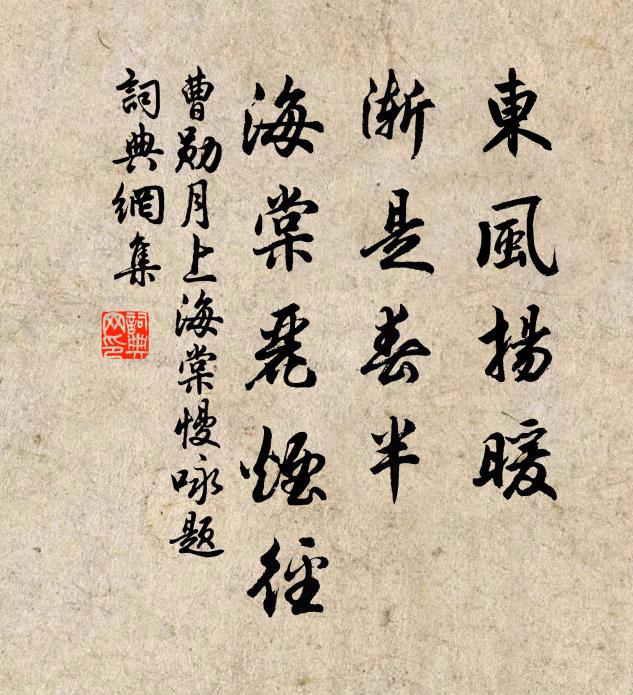 東風揚暖
漸是春半
海棠麗煙徑
曹勛月上海棠慢咏題
詞典網集
詞典网印